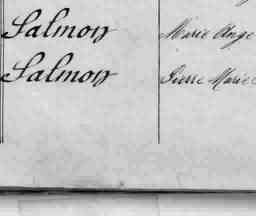 Salmon Marie Ange
Salmon Pierre Marie